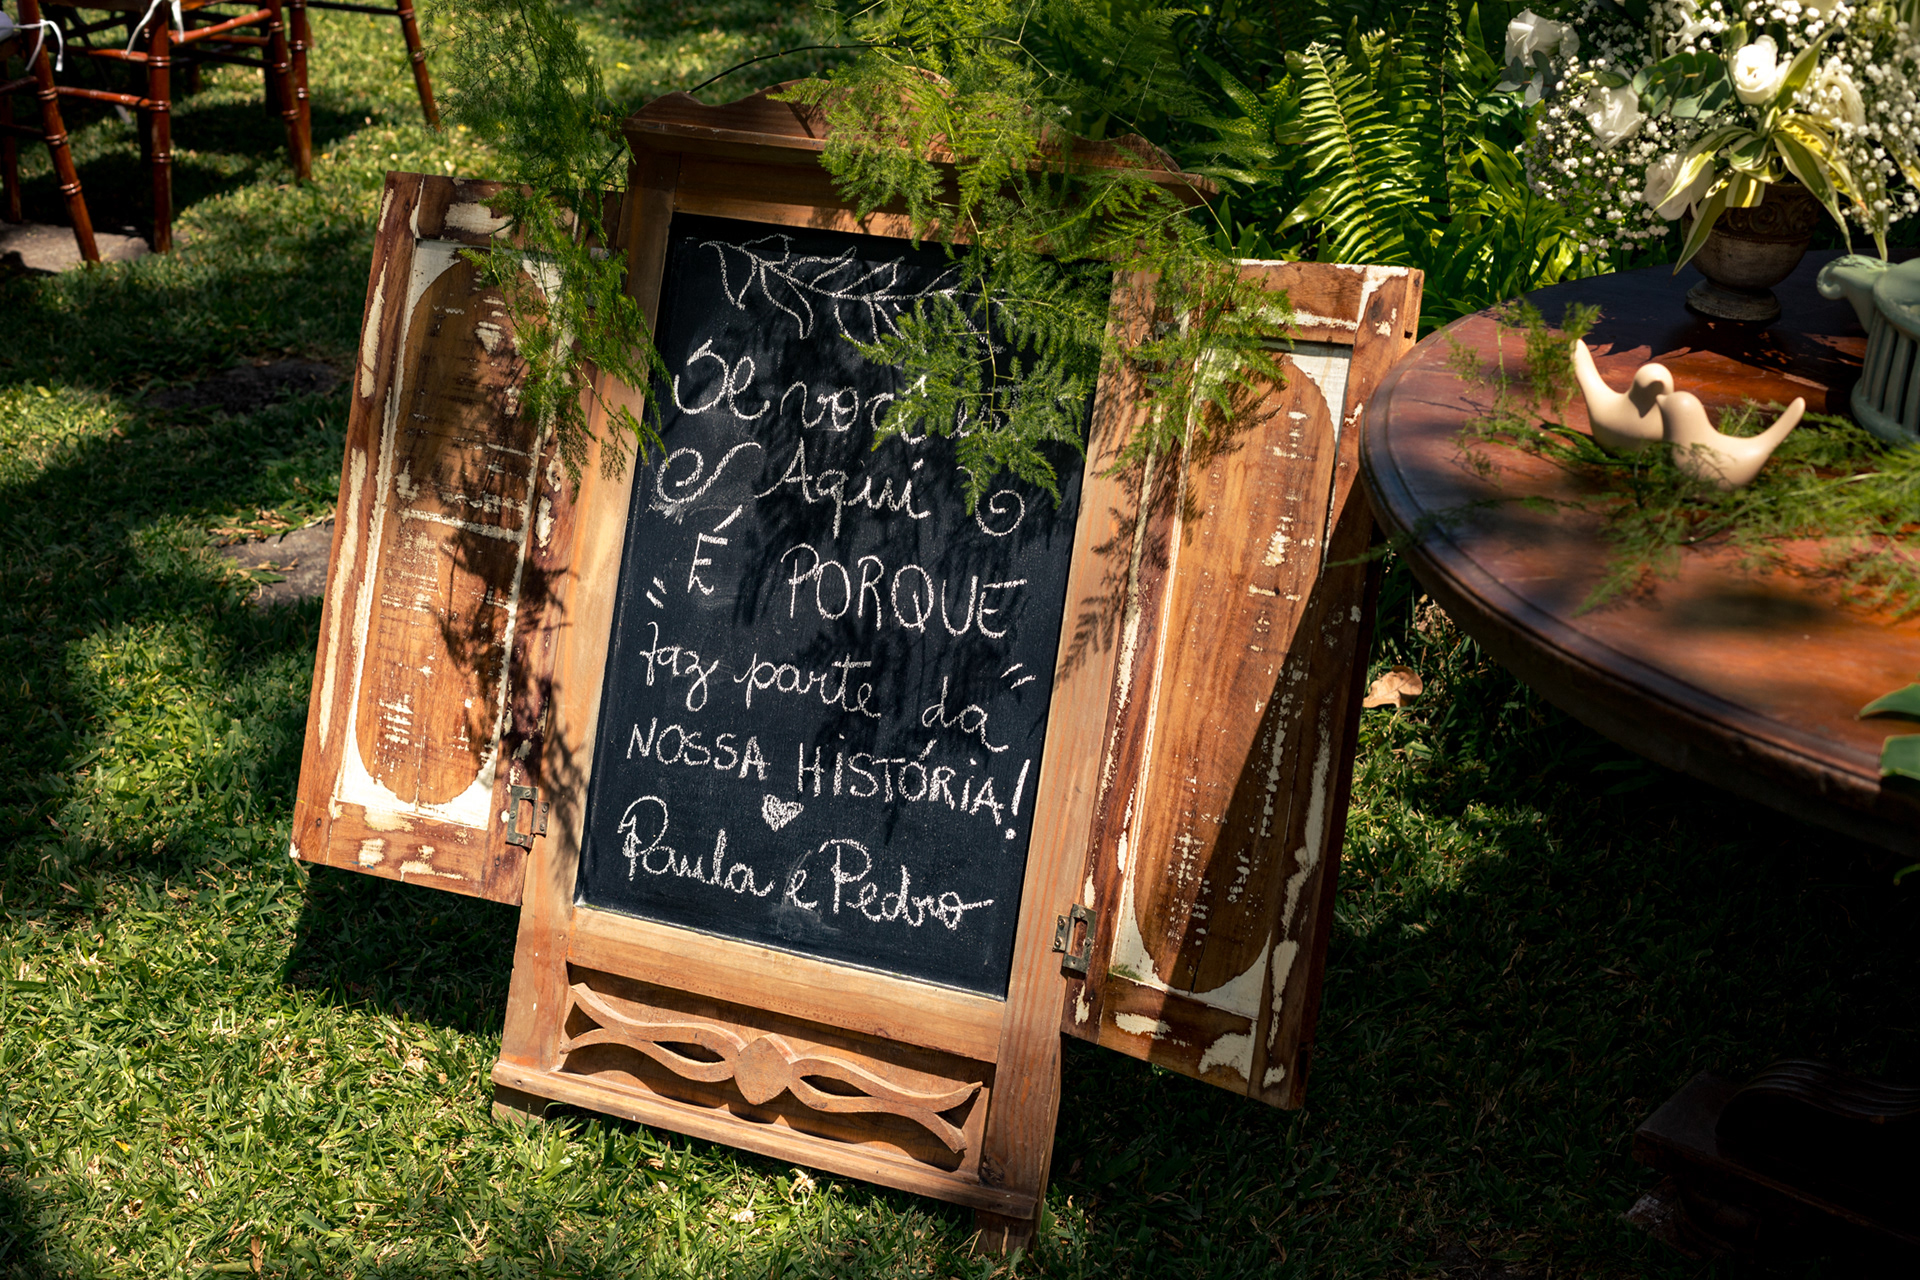 Se você
Aqui
É PORQUE
faz parte da
NOSSA HISTÓRIA!
Paula e Pedro